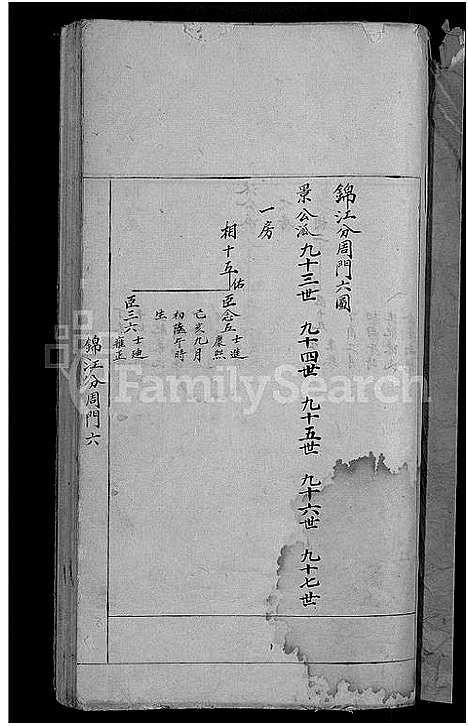 錦江分周門六圖
景公派九十三世 九十四世 九十五世 九十六世 九十七世
一房
相十五佑
臣念五士進康熙
己亥九月
初陸午時
生
臣三六士迪雍正
錦江分周門六
FamilySearch